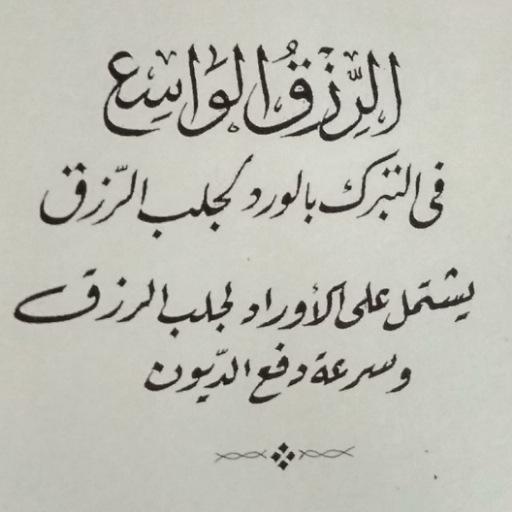 الرِّزْقُ الوَاسِع
فى التبرك بالورد لجلب الرّزق
يشتمل على الأوراد لجلب الرزق
وسرعة دفع الدّيون